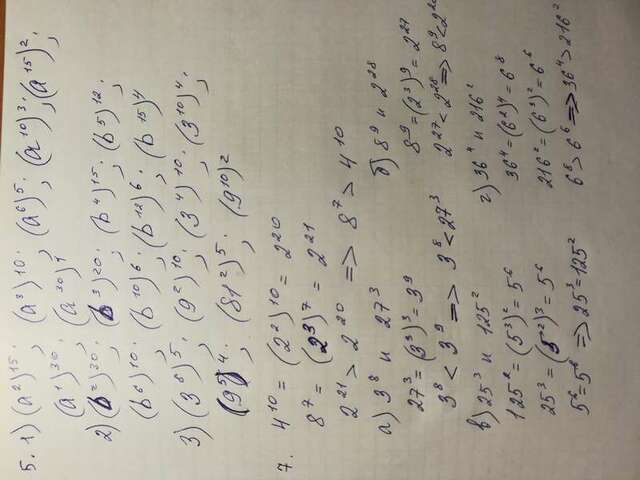 5. 1) (a²)¹⁵; (a³)¹⁰; (a⁶)⁵; (a¹⁰)³; (a¹⁵)²;
(a¹)³⁰; (a³⁰)¹
2) (b²)³⁰; (b³)²⁰; (b⁴)¹⁵; (b⁵)¹²;
(b⁶)¹⁰; (b¹⁰)⁶; (b¹²)⁶; (b¹⁵)⁴
3) (3⁸)⁵; (9²)¹⁰; (3⁴)¹⁰; (3¹⁰)⁴;
(9⁵)⁴; (81²)⁵; (9¹⁰)²
7. 4¹⁰ = (2²)¹⁰ = 2²⁰
8⁷ = (2³)⁷ = 2²¹
2²¹ > 2²⁰ => 8⁷ > 4¹⁰
а) 3⁸ и 27³
27³ = (3³)³ = 3⁹
3⁸ < 3⁹ => 3⁸ < 27³
б) 8⁹ и 2²⁸
8⁹ = (2³)⁹ = 2²⁷
2²⁷ < 2²⁸ => 8⁹ < 2²⁸
в) 25³ и 125²
125² = (5³)² = 5⁶
25³ = (5²)³ = 5⁶
5⁶ = 5⁶ => 25³ = 125²
г) 36⁴ и 216²
36⁴ = (6²)⁴ = 6⁸
216² = (6³)² = 6⁶
6⁸ > 6⁶ => 36⁴ > 216²